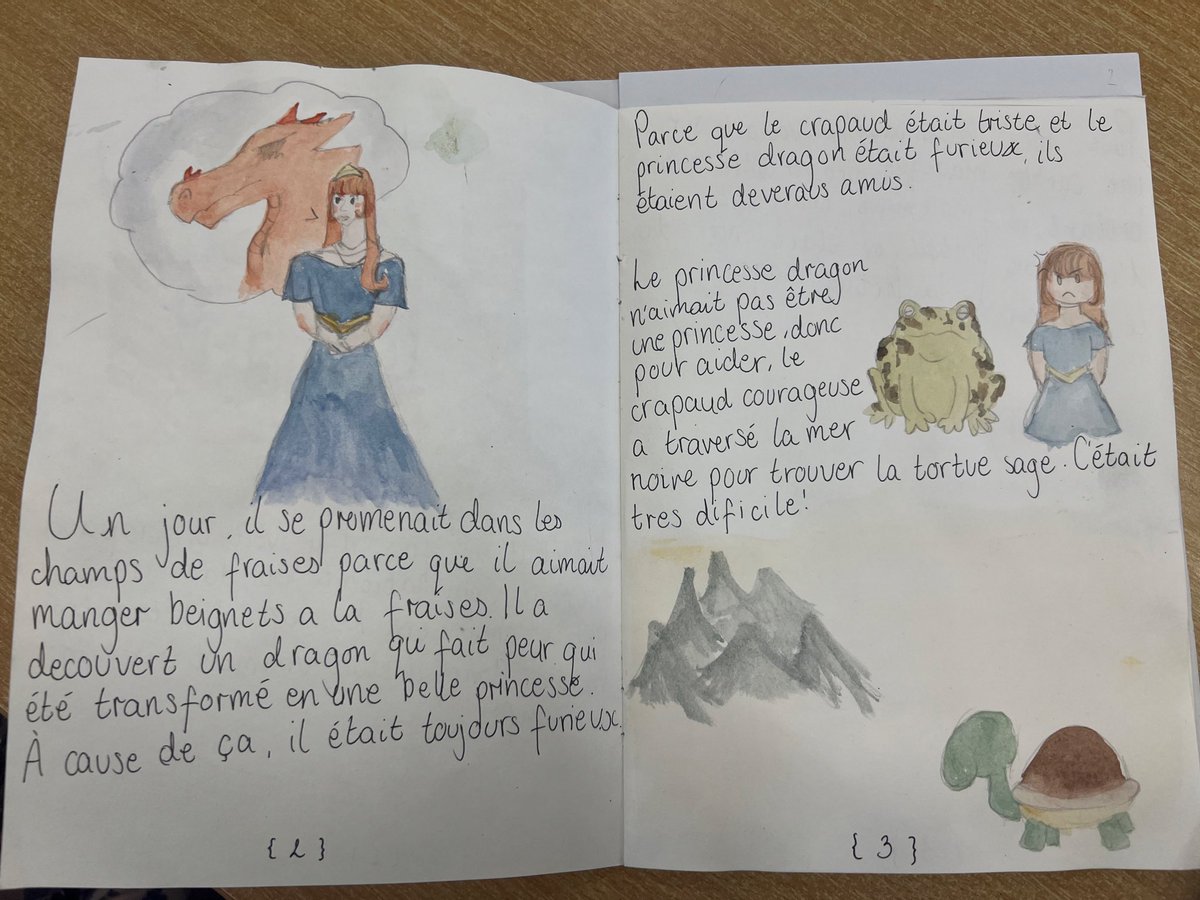 Un jour, il se promenait dans les
champs de fraises parce que il aimait
manger beignets a la fraises. Il a
decouvert un dragon qui fait peur qui
été transformé en une belle princesse.
À cause de ça, il était toujours furieux.
{2}
2
Parce que le crapaud était triste et le
princesse dragon était furieux, ils
étaient deverais amis.
Le princesse dragon
n'aimait pas être
une princesse, donc
pour aider, le
crapaud courageuse
a traversé la mer
noire pour trouver la tortue sage. C'était
tres dificile!
{3}